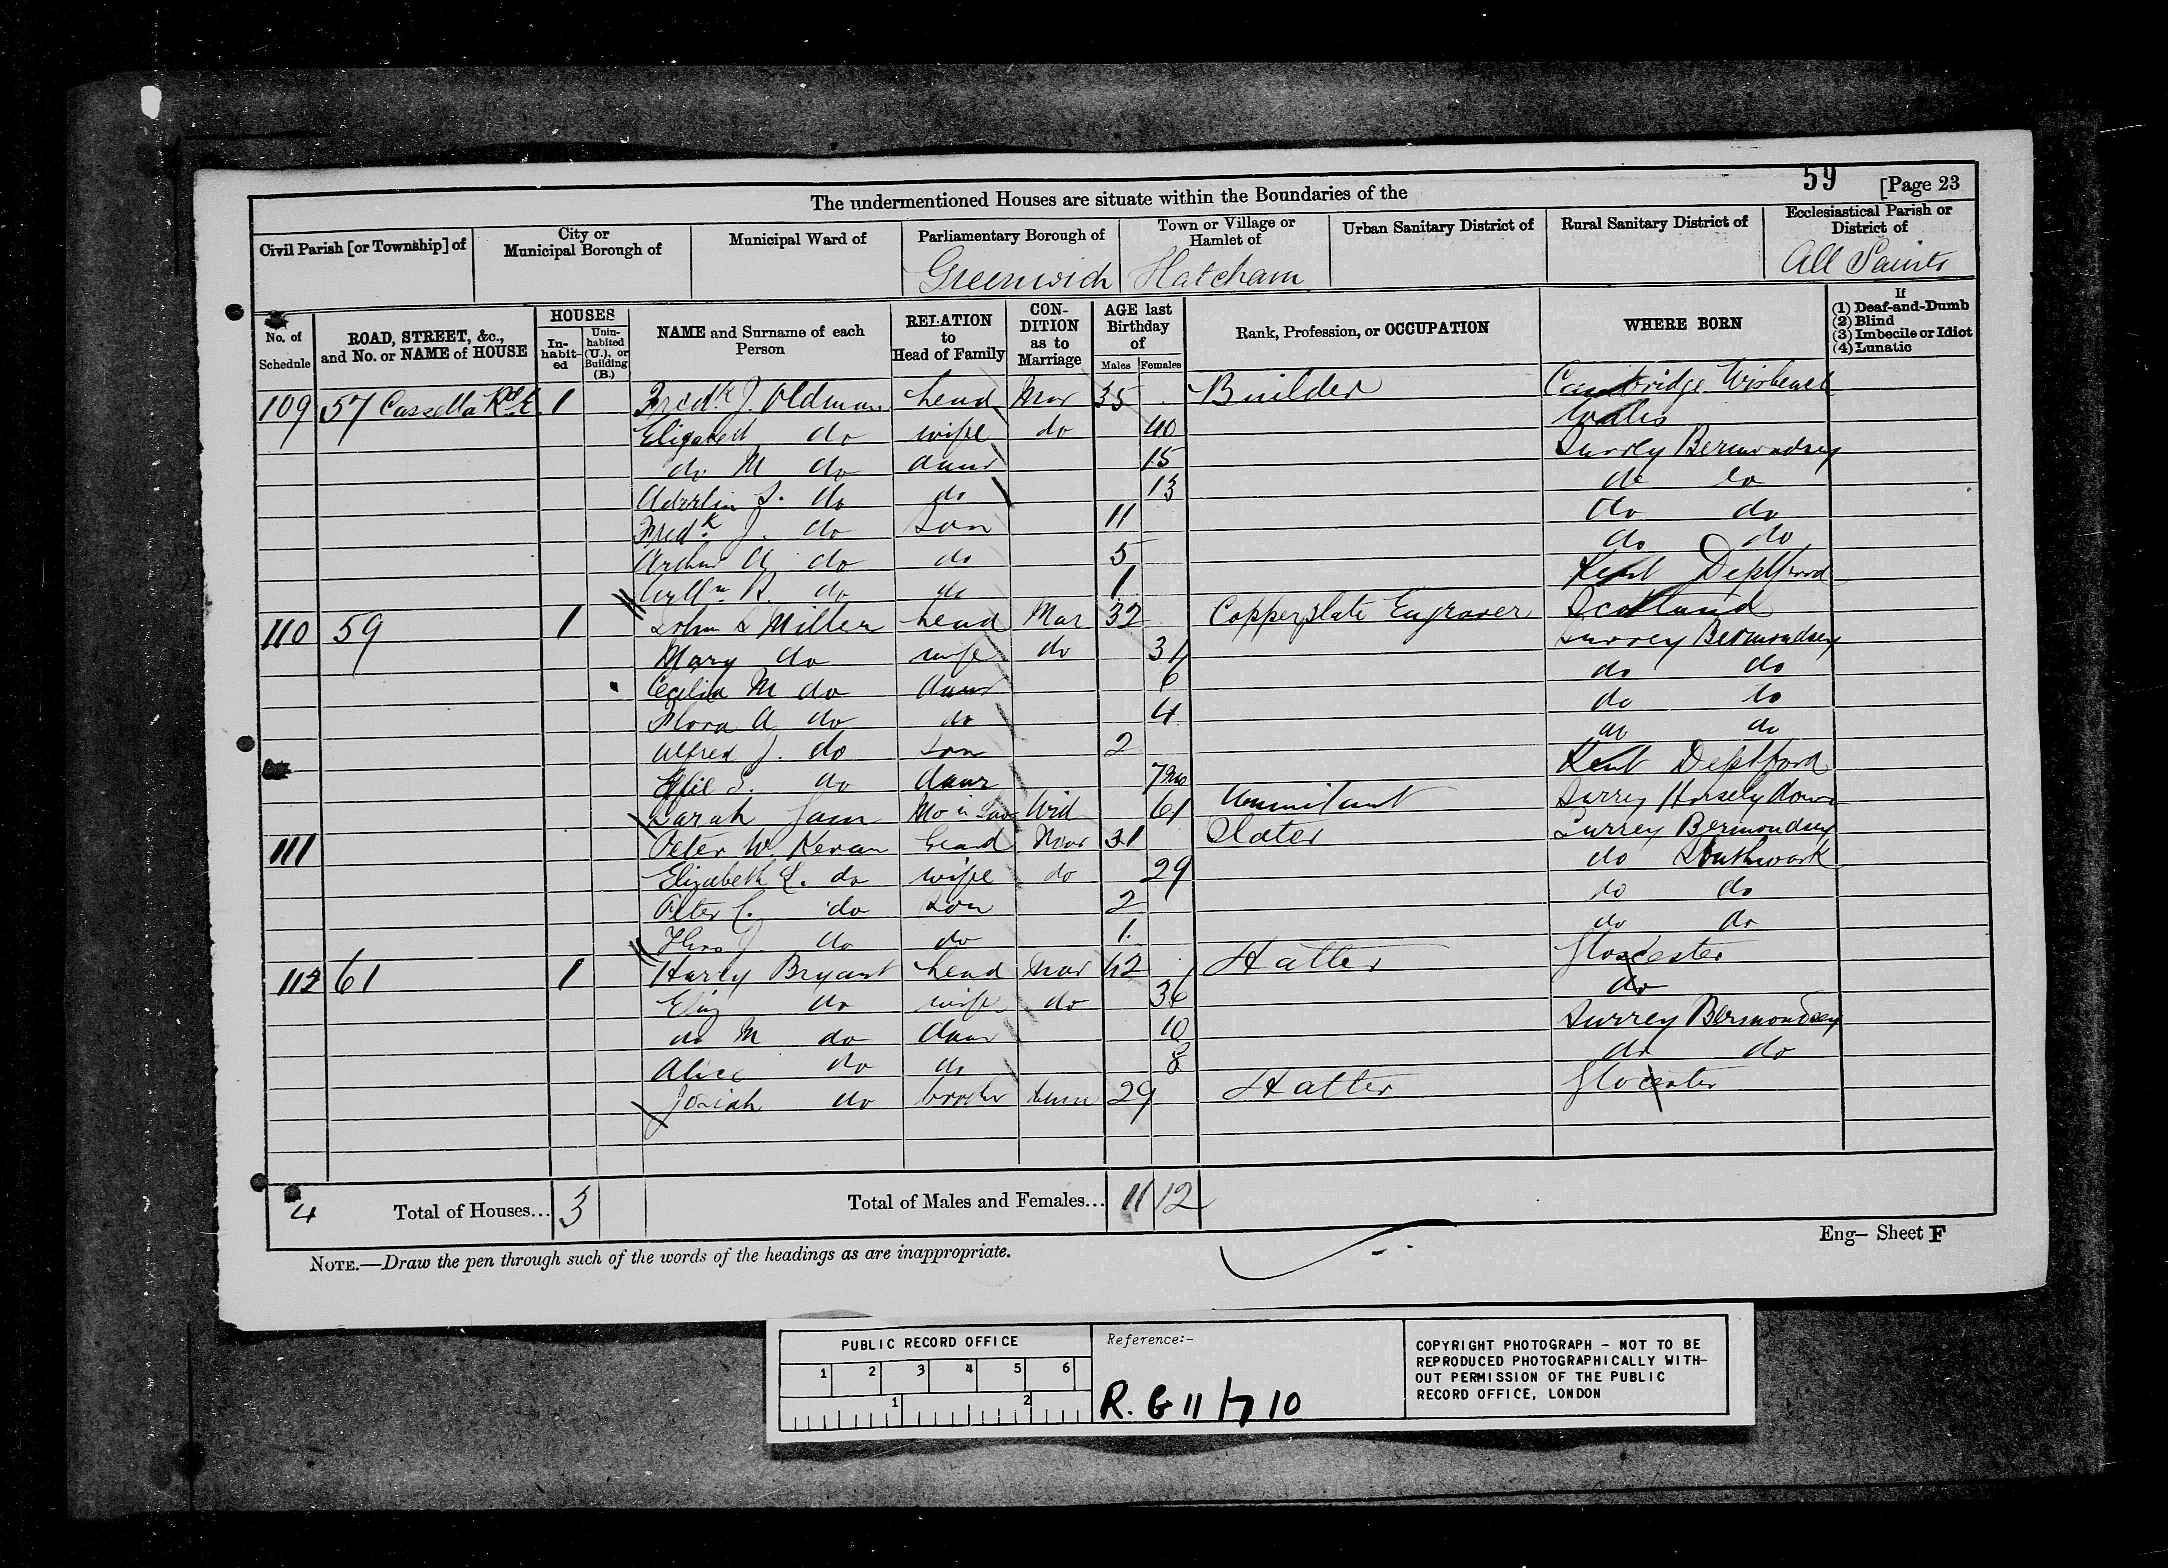 The undermentioned Houses are situate within the Boundaries of the
59 [Page 23
Civil Parish [or Township] of
City or Municipal Borough of
Municipal Ward of
Parliamentary Borough of
Town or Village or Hamlet of
Urban Sanitary District of
Rural Sanitary District of
Ecclesiastical Parish or District of
Greenwich Hatcham All Saints
No. of Schedule
ROAD, STREET, &c., and No. or NAME of HOUSE
HOUSES
In-habit-ed
Unin-habited (U.), or Building (B.)
NAME and Surname of each Person
RELATION to Head of Family
CON-DITION as to Marriage
AGE last Birthday of
Males Females
Rank, Profession, or OCCUPATION
WHERE BORN
If
(1) Deaf-and-Dumb
(2) Blind
(3) Imbecile or Idiot
(4) Lunatic
109 57 Cassella Rd 1 Fredk J. Oldman head Mar 35 Builder Cambridge Wisbeach
Elizabeth do wife do 40 Wales
do M do daur 15 Surrey Bermondsey
do do 13 do do
Fredk J. do son 11 do do
Arthur A do do 5 do do
Willm do do 1 Kent Deptford
110 59 1 John S Miller head Mar 32 Copperplate Engraver Scotland
Mary do wife do 31 Surrey Bermondsey
Cecilia M do daur 6 do do
Flora A do do 4 do do
Alfred J. do son 2 do do
Effie S. do daur 7mo Kent Deptford
Sarah Mo in Law Wid 61 Annuitant Surrey Horselydown
111 Peter W. Kevan head Mar 31 Slater Surrey Bermondsey
Elizabeth L. do wife do 29 do Southwark
Peter C. do son 2 do do
Thos J. do do 1 do do
112 61 1 Harry Bryant head Mar 42 Hatter Glocester
Eliz do wife do 36 do
do M do daur 10 Surrey Bermondsey
Alice do do 8 do do
Josiah do brother 29 Hatter Glocester
4 Total of Houses... 3 Total of Males and Females... 11 12
Eng— Sheet F
NOTE.—Draw the pen through such of the words of the headings as are inappropriate.
PUBLIC RECORD OFFICE
1 2 3 4 5 6
1 2
Reference:-
R.G 11/710
COPYRIGHT PHOTOGRAPH - NOT TO BE
REPRODUCED PHOTOGRAPHICALLY WITH-
OUT PERMISSION OF THE PUBLIC
RECORD OFFICE, LONDON